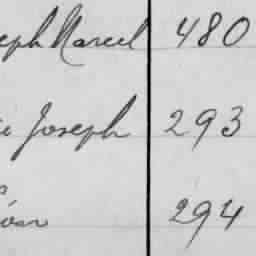 eph Marcel 480
ie Joseph 293
294